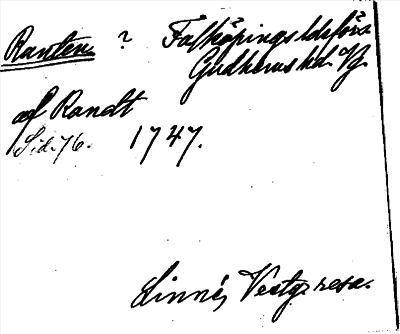 Ranten ? Falköpings ldsförs.
Gudhems hd. Vg.
af Randt
Sid. 76. 1747.
Linné, Vestg. resa.